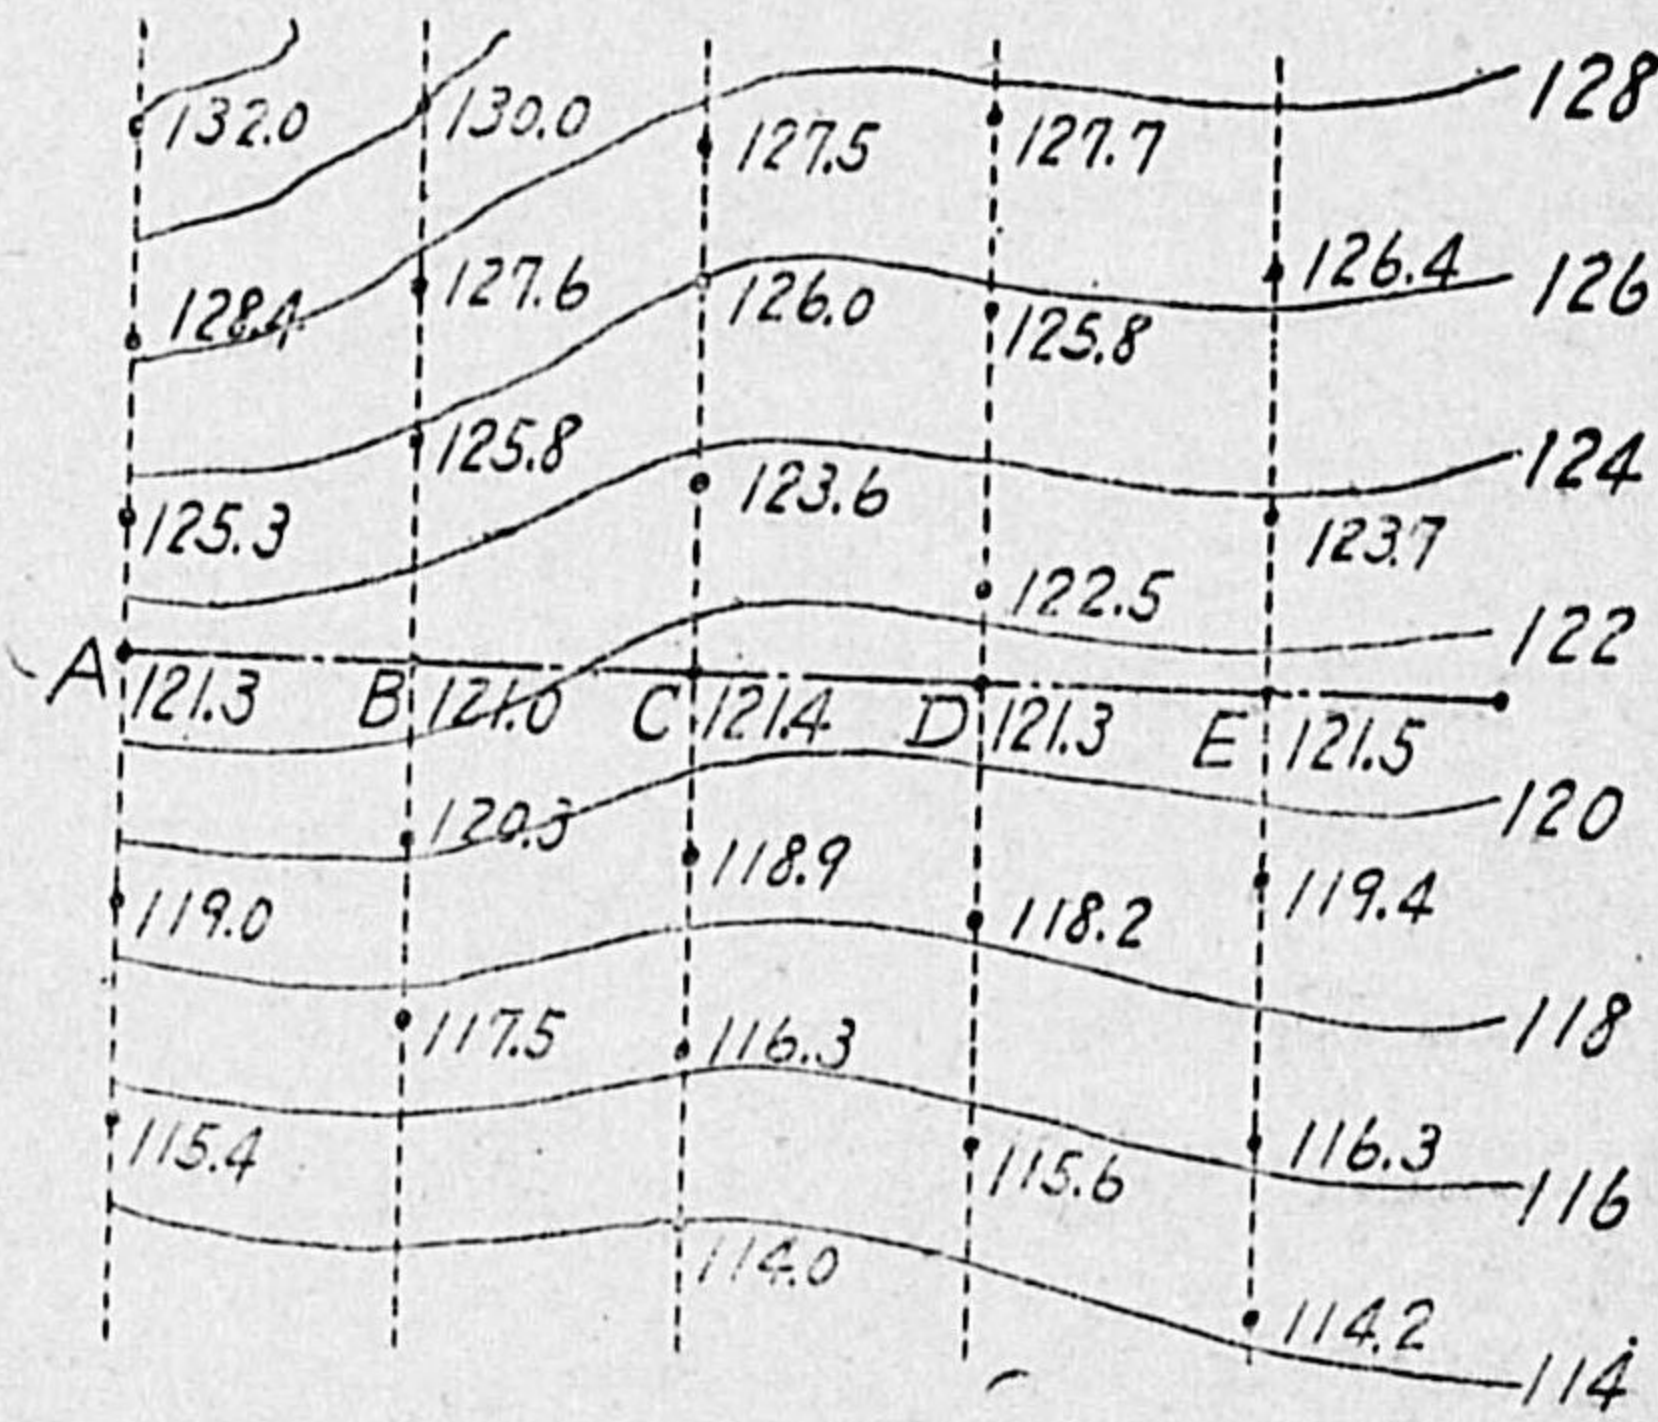 128
132.0 130.0 127.5 127.7
128.4 127.6 126.0 125.8 126.4 126
125.3 125.8 123.6 123.7 124
122.5 122
A 121.3 B 121.0 C 121.4 D 121.3 E 121.5
120.3 120
119.0 118.9 118.2 119.4
117.5 116.3 118
115.4 115.6 116.3 116
114.0 114.2 114